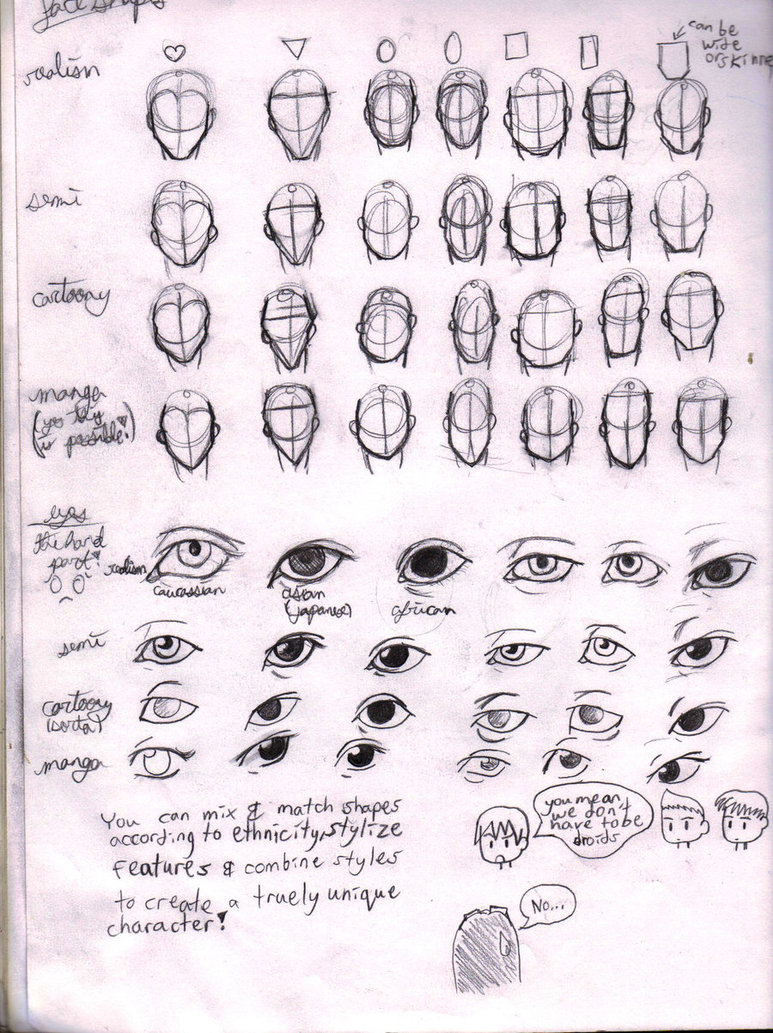 face shapes
can be
wide
or skinney
realism
semi
cartoony
manga
is possible!
eyes
the hard
part!
realism
caucassian
asian
(japanese)
african
semi
cartoony
(sorta)
manga
You can mix & match shapes
according to ethnicity, stylize
features & combine styles
to create a truely unique
character!
you mean
we don't
have to be
droids
No...